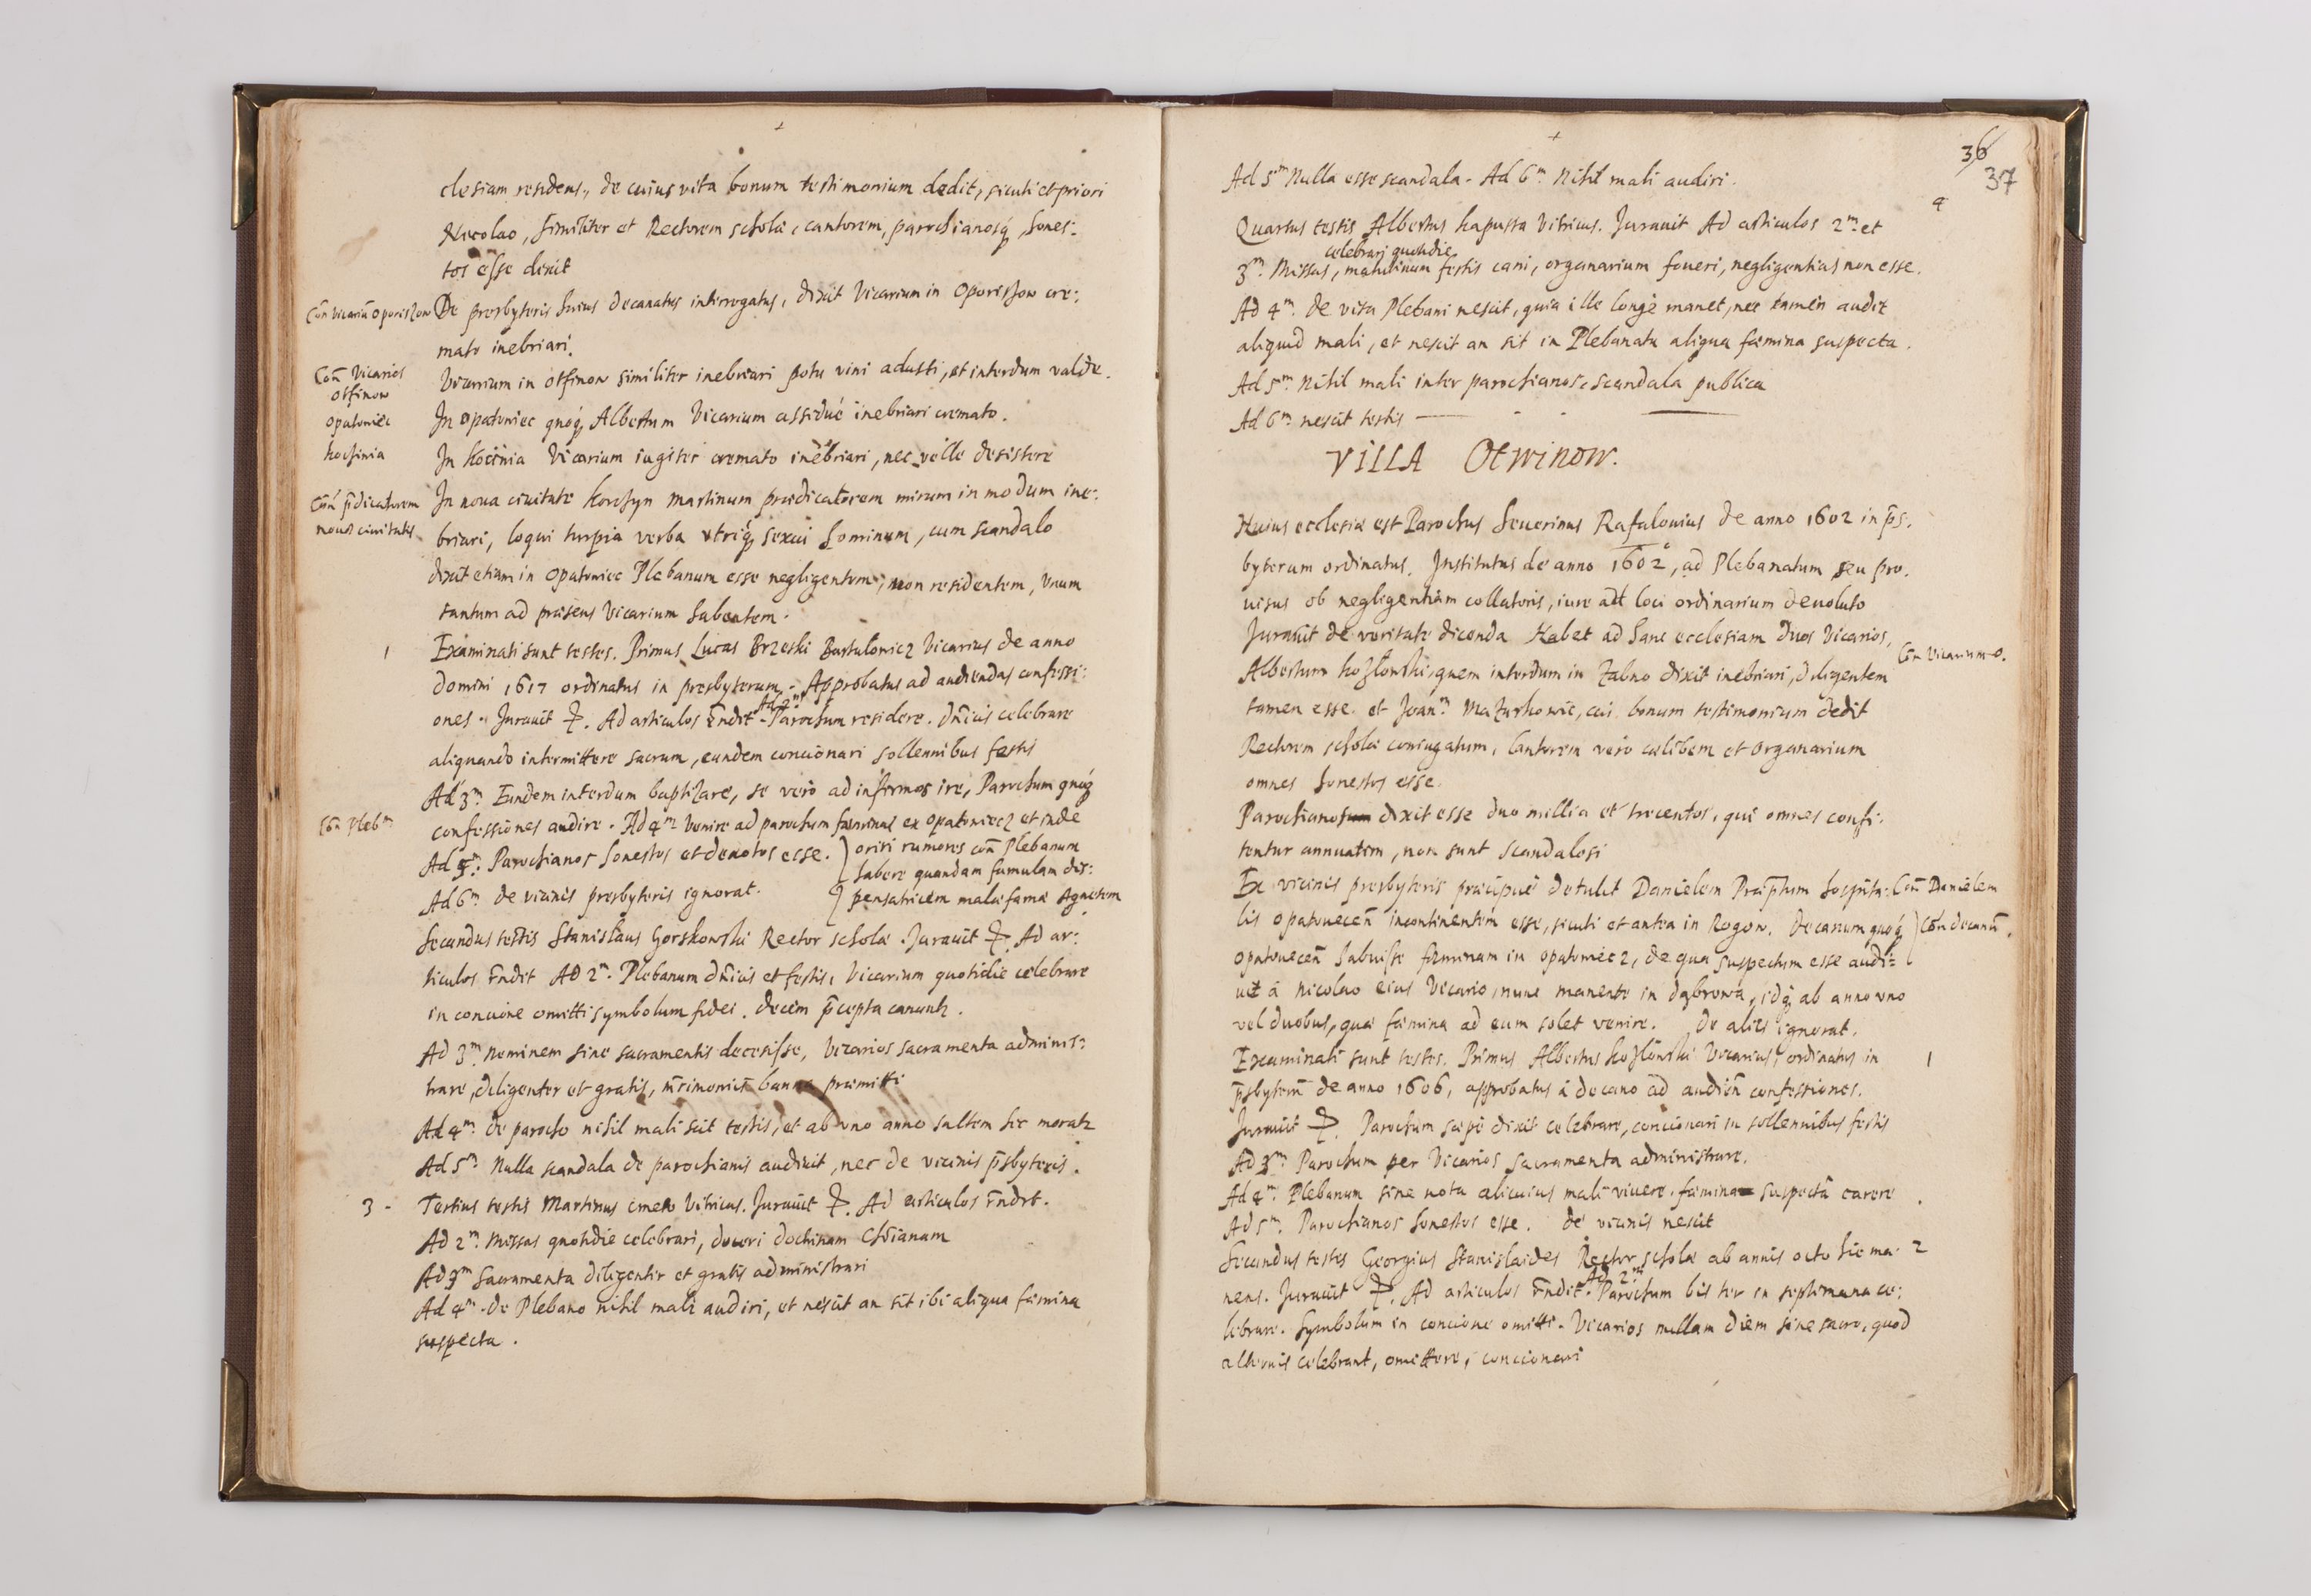 clesiam residens, de cuius vita bonum testimonium dedit, sicuti et priori
Nicolao, similiter et Rectorem scholæ, cantorem, parochianosq, hones:
tos esse dixit
Con Vicariũ Oporiszow
De presbyteris huius decanatus interrogatus, dixit Vicarium in Oporiszow cre:
mato inebriari.
Con Vicarios
Otfinow
Vicarium in Otfinow similiter inebriari potu vini adusti, et interdum valde.
Opatoviec
In Opatoviec quoq Albertum Vicarium assiduè inebriari cremato.
Kocsinia
In Kocinia Vicarium iugiter cremato inebriari, nec velle desistere
Con p̃dicatorem
novæ civitatis
In nova civitate Korczyn Martinum prædicatorem mirum in modum ine:
briari, loqui turpia verba vtriq sexui hominum, cum scandalo
dixit etiam in Opatoviec Plebanum esse negligentem, non residentem, vnum
tantum ad præsens Vicarium habentem.
1
Examinati sunt testes. Primus Lucas Brzeski Bartulowicz Vicarius de anno
domini 1617 ordinatus in presbyterum. Approbatus ad audiendas confessi:
ones. Juravit ┼. Ad articulos r̃ndit. Ad 2m Parochum residere. Dñicis celebrare
aliquando intermittere sacrum, eundem concionari sollennibus festis
Ad 3m Eundem interdum baptizare, se vero ad infirmos ire, Parochum quoq
Con Plebm
confessiones audire. Ad 4m Venire ad parochum fæminas ex Opatowiecz et inde
oriri rumores con Plebanum
habere quandam famulam dis:
pensatricem malæ famæ Agnetem
Ad 5m: Parochianos honestos et devotos esse.
Ad 6m de vicinis presbyteris ignorat.
Secundus testis Stanislaus Gorskowski Rector scholæ. Juravit ┼. Ad ar:
ticulos r̃ndit Ad 2m. Plebanum dñicis et festis, Vicarium quotidie celebrare
in concione omitti symbolum fidei. decem p̃cepta canuntr.
Ad 3m neminem sine sacramentis decessisse, Vicarios sacramenta adminis:
trare, diligenter et gratis, m̃rimoniis banna præmitti
Ad 4m. de parocho nihil mali scit testis, et ab vno anno saltem hic moratr
Ad 5m: Nulla scandala de parochianis audivit, nec de vicinis p̃sbyteris.
3 -
Tertius testis Martinus cmeto Vitricus. Juravit ┼. Ad articulos r̃ndit.
Ad 2m. Missas quotidie celebrari, doceri doctrinam Chr̃ianam
Ad 3m Sacramenta diligenter et gratis administrari
Ad 4m. de Plebano nihil mali audiri, et nescit an sit ibi aliqua fæmina
suspecta.
36
37
Ad 5m Nulla esse scandala. Ad 6m. Nihil mali audiri.
4
Quartus testis Albertus Kapusta Vitricus. Juravit Ad articulos 2m: et
celebrari quotidie
3m. Missas, matutinum festis cani, organarium foveri, negligentias non esse.
Ad 4m. de vita Plebani nescit, quia ille longè manet, nec tamen audit
aliquid mali, et nescit an sit in Plebanatu aliqua fæmina suspecta.
Ad 5m. Nihil mali inter parochianos, scandala publica
Ad 6m. nescit testis
VILLA Otwinow.
Huius ecclesiæ est Parochus Severinus Rafalovius de anno 1602 in p̃s.
byterum ordinatus. Institutus de anno 1602, ad Plebanatum seu pro.
visus ob negligentiam collatoris, iure ad loci ordinarium devoluto
Juravit de veritate dicenda Habet ad hanc ecclesiam duos Vicarios,
Con Vicarium O.
Albertum Kozlowski, quem interdum in Zabno dixit inebriari, diligentem
tamen esse. et Joanm Mazurkowic, cui bonum testimonium dedit
Rectorem scholæ coniugatum, Cantorem vero cælibem et organarium
omnes honestos esse.
Parochianos dixit esse duo millia et trecentos, qui omnes confi:
tentur annuatim, non sunt scandalosi
Ex vicinis presbyteris præcipuè detulit Danielem Præp̃tum hospita:
Con Danielem
lis opatovecen̄ incontinentem esse, sicuti et antea in Rogow. Decanum quoq
Con decanũ.
opatovecen̄ habuisse fæminam in opatowiecz, de qua suspectum esse audi:
vit à Nicolao eius Vicario, nunc manente in Dąbrowa, idq ab anno vno
vel duobus, quæ fæmina ad eum solet venire. De aliis ignorat.
1
Examinati sunt testes. Primus Albertus Kozlowski Vicarius, ordinatus in
p̃sbyterũ de anno 1606, approbatus à decano ad audien̄ confessiones.
Juravit ┼. Parochum sæpè dixit celebrare, concionari in sollennibus festis
Ad 3m Parochum per Vicarios sacramenta administrare.
Ad 4m Plebanum sine nota alicuius mali vivere. fæmina suspectâ carere
Ad 5m. Parochianos honestos esse. de vicinis nescit
2
Secundus testis Georgius Stanislaides Rector scholæ ab annis octo hic ma:
nens. Juravit ┼. Ad articulos r̃ndit. Ad 2m Parochum bis ter in septimana ce:
lebrare. Symbolum in concione omitti. Vicarios nullam diem sine sacro, quod
alternis celebrant, omittere, concionari